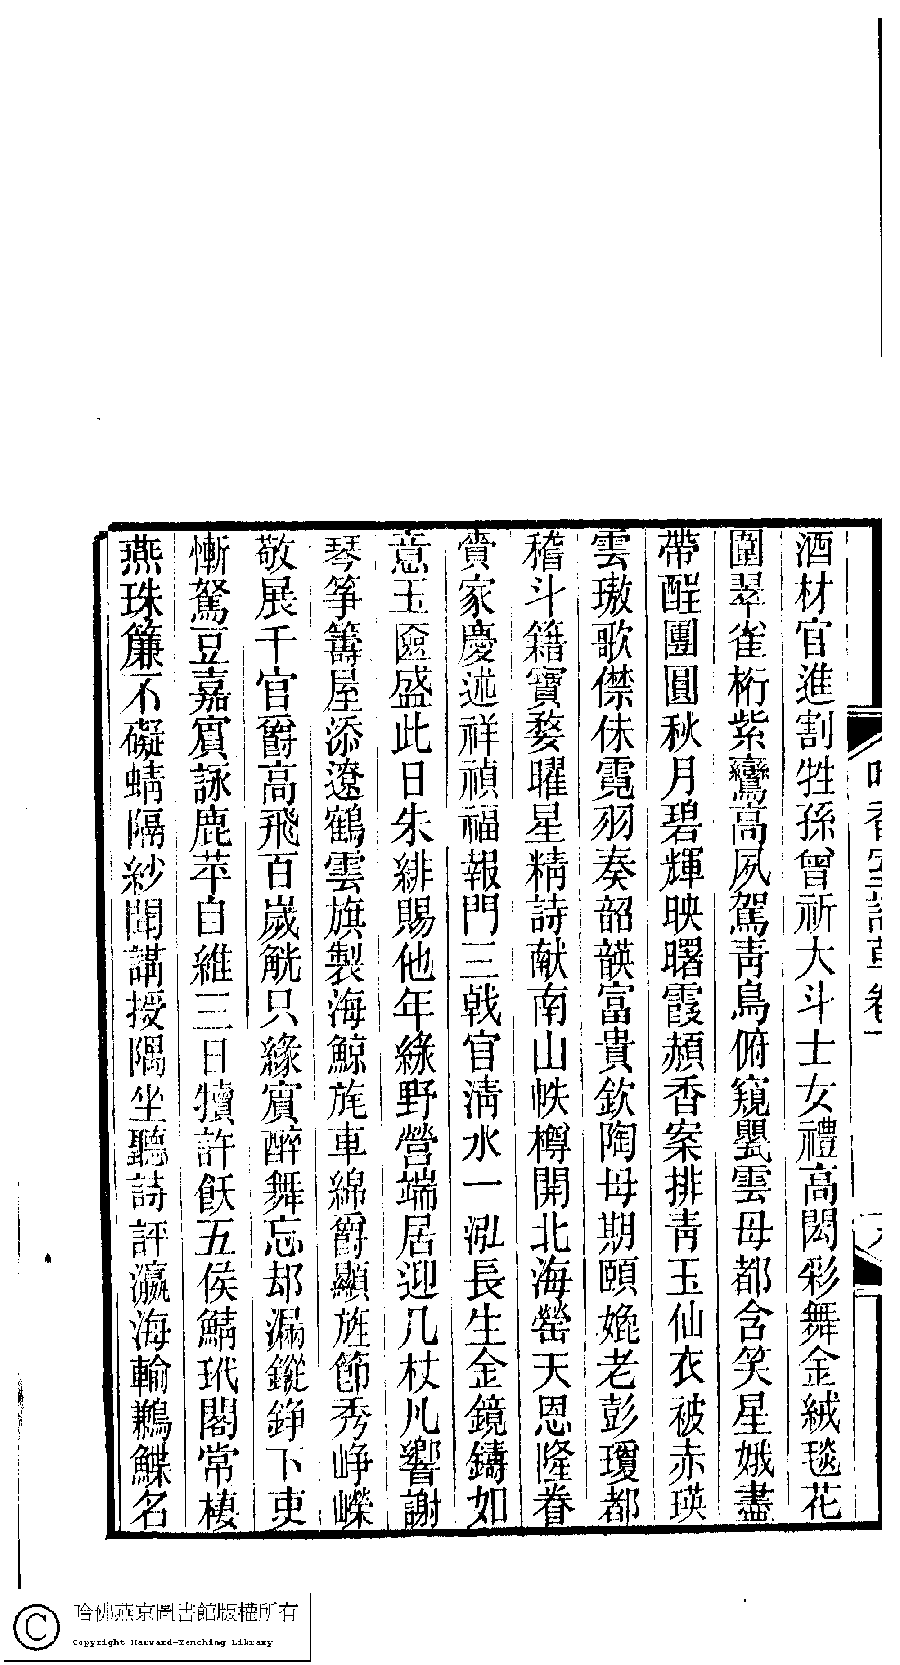 酒材官進割牲孫曾祈大斗士女禮高閎彩舞金絨毯花
圍翠雀桁紫鸞高夙駕靑鳥俯窺甖雲母都含笑星娥盡
帶酲團圓秋月碧輝映曙霞頳香案排靑玉仙衣被赤瑛
雲璈歌僸佅霓羽奏韶韺富貴欽陶母期頤婉老彭瓊都
稽斗籍寶婺曜星精詩献南山帙樽開北海罃天恩隆眷
賚家慶述祥禎福報門三戟官淸水一泓長生金鏡鑄如
意玉匳盛此日朱緋賜他年綠野營端居迎几杖凡響謝
琴箏籌屋添遼鶴雲旗製海鯨旄車綿爵顯旌節秀崢嶸
敬展千官爵高飛百歲觥只緣賓醉舞忘却漏鏦錚下吏
慚駑豆嘉賓詠鹿苹自維三日犢許飫五侯鯖玳閣常棲
燕珠簾不礙蜻隔紗聞講授隅坐聽詩評瀛海輸鶼鰈名
香室詩草卷一
哈佛燕京圖書館版權所有
Copyright Harvard-Yenching Library